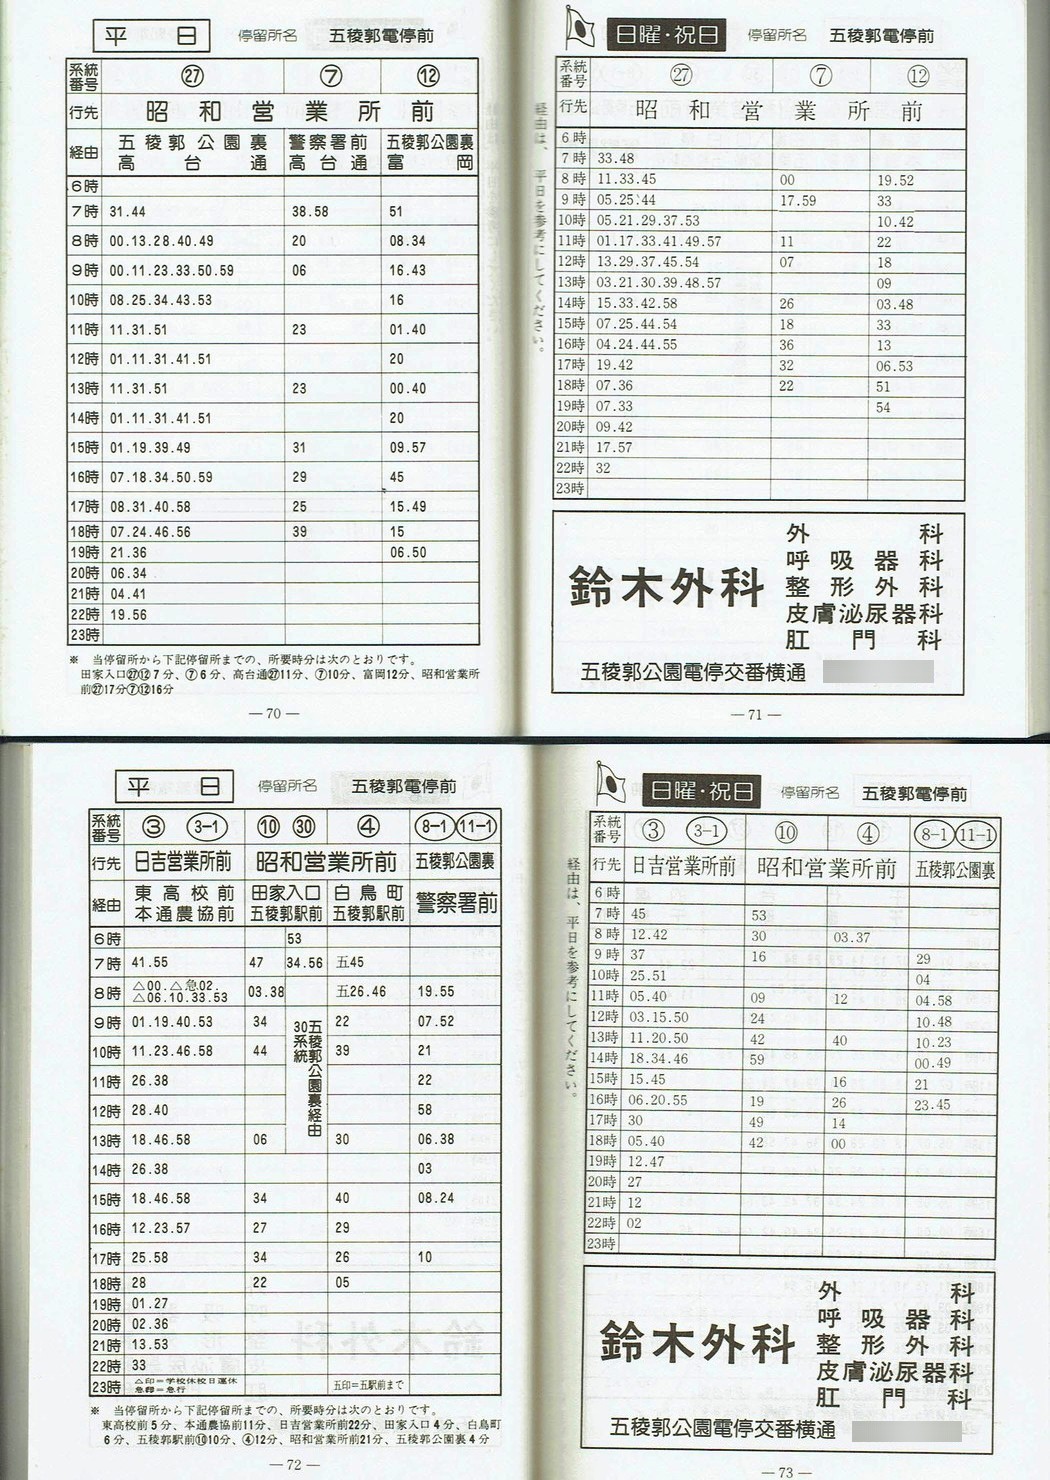 平日 停留所名 五稜郭電停前
系統番号 ㉗ ⑦ ⑫
行先 昭和営業所前
経由 五稜郭公園裏 高台通 警察署前 高台通 五稜郭公園裏 富岡
6時
7時 31.44 38.58 51
8時 00.13.28.40.49 20 08.34
9時 00.11.23.33.50.59 06 16.43
10時 08.25.34.43.53 16
11時 11.31.51 23 01.40
12時 01.11.31.41.51 20
13時 11.31.51 23 00.40
14時 01.11.31.41.51 20
15時 01.19.39.49 31 09.57
16時 07.18.34.50.59 29 45
17時 08.31.40.58 25 15.49
18時 07.24.46.56 39 15
19時 21.36 06.50
20時 06.34
21時 04.41
22時 19.56
23時
※ 当停留所から下記停留所までの、所要時分は次のとおりです。
田家入口㉗⑫7分、⑦6分、高台通㉗11分、⑦10分、富岡12分、昭和営業所
前㉗17分⑦⑫16分
—70—
日曜・祝日 停留所名 五稜郭電停前
経由は、平日を参考にしてください。
系統番号 ㉗ ⑦ ⑫
行先 昭和営業所前
6時
7時 33.48
8時 11.33.45 00 19.52
9時 05.25.44 17.59 33
10時 05.21.29.37.53 10.42
11時 01.17.33.41.49.57 11 22
12時 13.29.37.45.54 07 18
13時 03.21.30.39.48.57 09
14時 15.33.42.58 26 03.48
15時 07.25.44.54 18 33
16時 04.24.44.55 36 13
17時 19.42 32 06.53
18時 07.36 22 51
19時 07.33 54
20時 09.42
21時 17.57
22時 32
23時
鈴木外科
外科
呼吸器科
整形外科
皮膚泌尿器科
肛門科
五稜郭公園電停交番横通
—71—
平日 停留所名 五稜郭電停前
系統番号 ③ 3-1 ⑩ ㉚ ④ 8-1 11-1
行先 日吉営業所前 昭和営業所前 五稜郭公園裏
経由 東高校前 本通農協前 田家入口 五稜郭駅前 白鳥町 五稜郭駅前 警察署前
6時 53
7時 41.55 47 34.56 五45
8時 △00.△急02. △06.10.33.53 03.38 五26.46 19.55
9時 01.19.40.53 34 22 07.52
10時 11.23.46.58 44 39 21
11時 26.38 22
12時 28.40 58
13時 18.46.58 06 30 06.38
30系統 五稜郭公園裏経由
14時 26.38 03
15時 18.46.58 34 40 08.24
16時 12.23.57 27 29
17時 25.58 34 26 10
18時 28 22 05
19時 01.27
20時 02.36
21時 13.53
22時 33
23時 △印=学校休校日運休 急印=急行 五印=五駅前まで
※ 当停留所から下記停留所までの、所要時分は次のとおりです。
東高校前5分、本通農協前11分、日吉営業所前22分、田家入口4分、白鳥町
6分、五稜郭駅前⑩10分、④12分、昭和営業所前21分、五稜郭公園裏4分
—72—
日曜・祝日 停留所名 五稜郭電停前
経由は、平日を参考にしてください。
系統番号 ③ 3-1 ⑩ ④ 8-1 11-1
行先 日吉営業所前 昭和営業所前 五稜郭公園裏
6時
7時 45 53
8時 12.42 30 03.37
9時 37 16 29
10時 25.51 04
11時 05.40 09 12 04.58
12時 03.15.50 24 10.48
13時 11.20.50 42 40 10.23
14時 18.34.46 59 00.49
15時 15.45 16 21
16時 06.20.55 19 26 23.45
17時 30 49 14
18時 05.40 42 00
19時 12.47
20時 27
21時 12
22時 02
23時
鈴木外科
外科
呼吸器科
整形外科
皮膚泌尿器科
肛門科
五稜郭公園電停交番横通
—73—